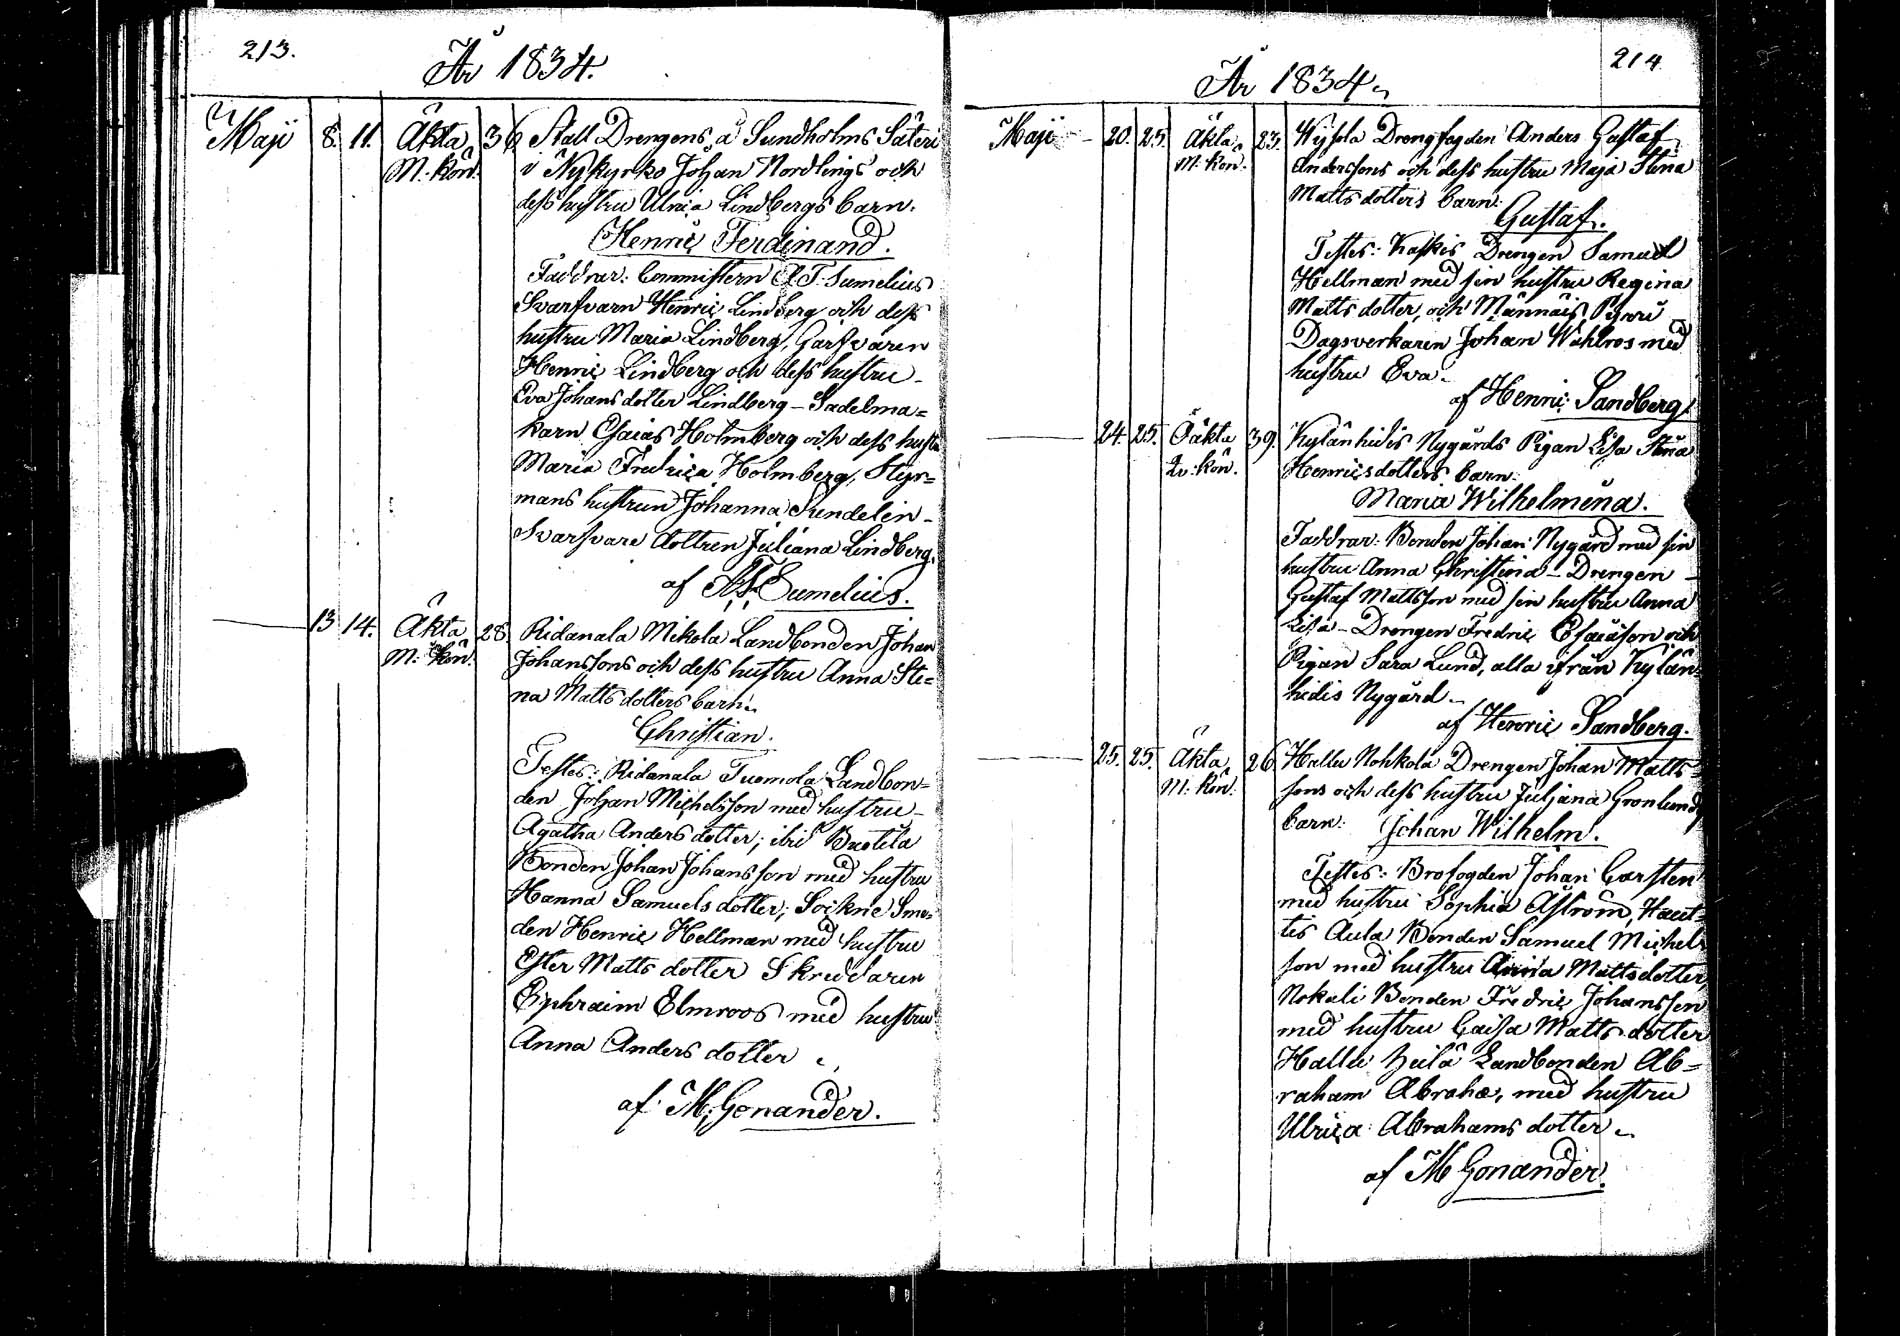 213.
År 1834.
Maji 8. 11. Äkta 36 Stall Drengens å Sundholms Säteri
M. kön. i Nykyrko Johan Nordlings och
dess hustru Ulrica Lindbergs barn.
Henric Ferdinand.
Faddrar: Commistern A F Sumelius
Svarfvarn Henric Lindberg och dess
hustru Maria Lindberg, Garfvaren
Henric Lindberg och dess hustru
Eva Johans dotter Lindberg – Sadelma=
karn Esaias Holmberg och dess hustru
Maria Fredrica Holmberg, Styr=
mans hustrun Johanna Sundelin –
Svarfvare dottren Juliana Lindberg.
af A.F. Sumelius.
13 14. Äkta 28. Ridanala Mikola Landbonden Johan
M. Kön. Johanssons och dess hustru Anna Ste=
na Matts dotters barn.
Christian.
Testes: Ridanala Tuomola Landbon=
den Johan Michelsson med hustru
Agatha Anders dotter; ibid
Bonden Johan Johansson med hustru
Hanna Samuels dotter; Sockne Sme=
den Henric Hellman med hustru
Ester Matts dotter Skreddaren
Ephraim Elmroos med hustru
Anna Anders dotter
af M. Gonander.
214
År 1834.
Maji – 20. 25. Äkta 23. Drengfogden Anders Gustaf
M. kön. Anderssons och dess hustru Maja Stina
Matts dotters barn.
Gustaf.
Testes: Kaskis Drengen Samuel
Hellman med sin hustru Regina
Matts dotter, och Männäis
Dagsverkaren Johan Wahlros med
hustru Eva.
af Henric Sandberg.
24. 25. Oäkta 39. Kylänhidis Nygårds Pigan Lisa Stina
Qv: kön. Henricsdotters barn.
Maria Wilhelmina.
Faddrar: Bonden Johan Nygård med sin
hustru Anna Christina – Drengen –
Gustaf Mattsson med sin hustru Anna
Lisa – Drengen Fredric Esaiasson och
Pigan Sara Lund, alla ifrån Kylän=
hidis Nygård –
af Henric Sandberg.
25. 25. Äkta 26 Hallu Nohkola Drengen Johan Matts=
M. Kön. sons och dess hustru Juliana Gronlunds
barn: Johan Wilhelm.
Testes: Brofogden Johan Carsten
med hustru Sophia Åström,
Aula Bonden Samuel Michels
son med hustru Anna Mattsdotter,
Nokali Bonden Fredric Johansson
med hustru Caisa Matts dotter
Hallu Landbonden Ab=
raham Abrahæ, med hustru
Ulrica Abrahams dotter
af M Gonander.